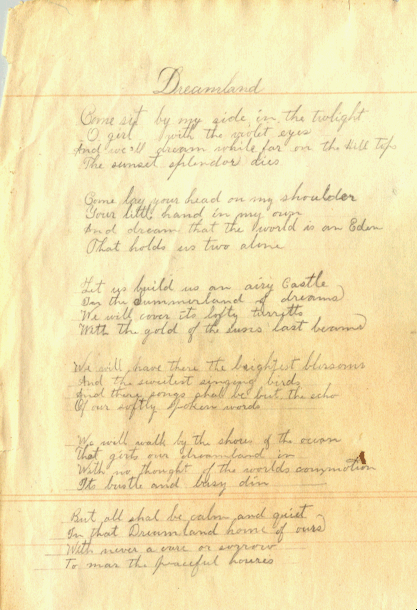 Dreamland
Come sit by my side in the twilight
O, girl with the violet eyes
And we'll dream while far on the Hill tops
The sunset splendor dies
Come lay your head on my shoulder
Your little hand in my own
And dream that the world is an Eden
That holds us two alone
Let us build us an airy Castle
In the Summerland of dreams
We will cover its lofty turretts
With the gold of the suns last beams
We will have there the brightest blossoms
And the sweetest singing birds
And there songs shall be but the echo
Of our softly spoken words
We will walk by the shores of the ocean
That girts our dreamland in
With no thought of the worlds commotion
Its bustle and busy din
But all shal be calm and quiet
In that Dreamland home of ours
With never a care or sorrow
To mar the peaceful houres